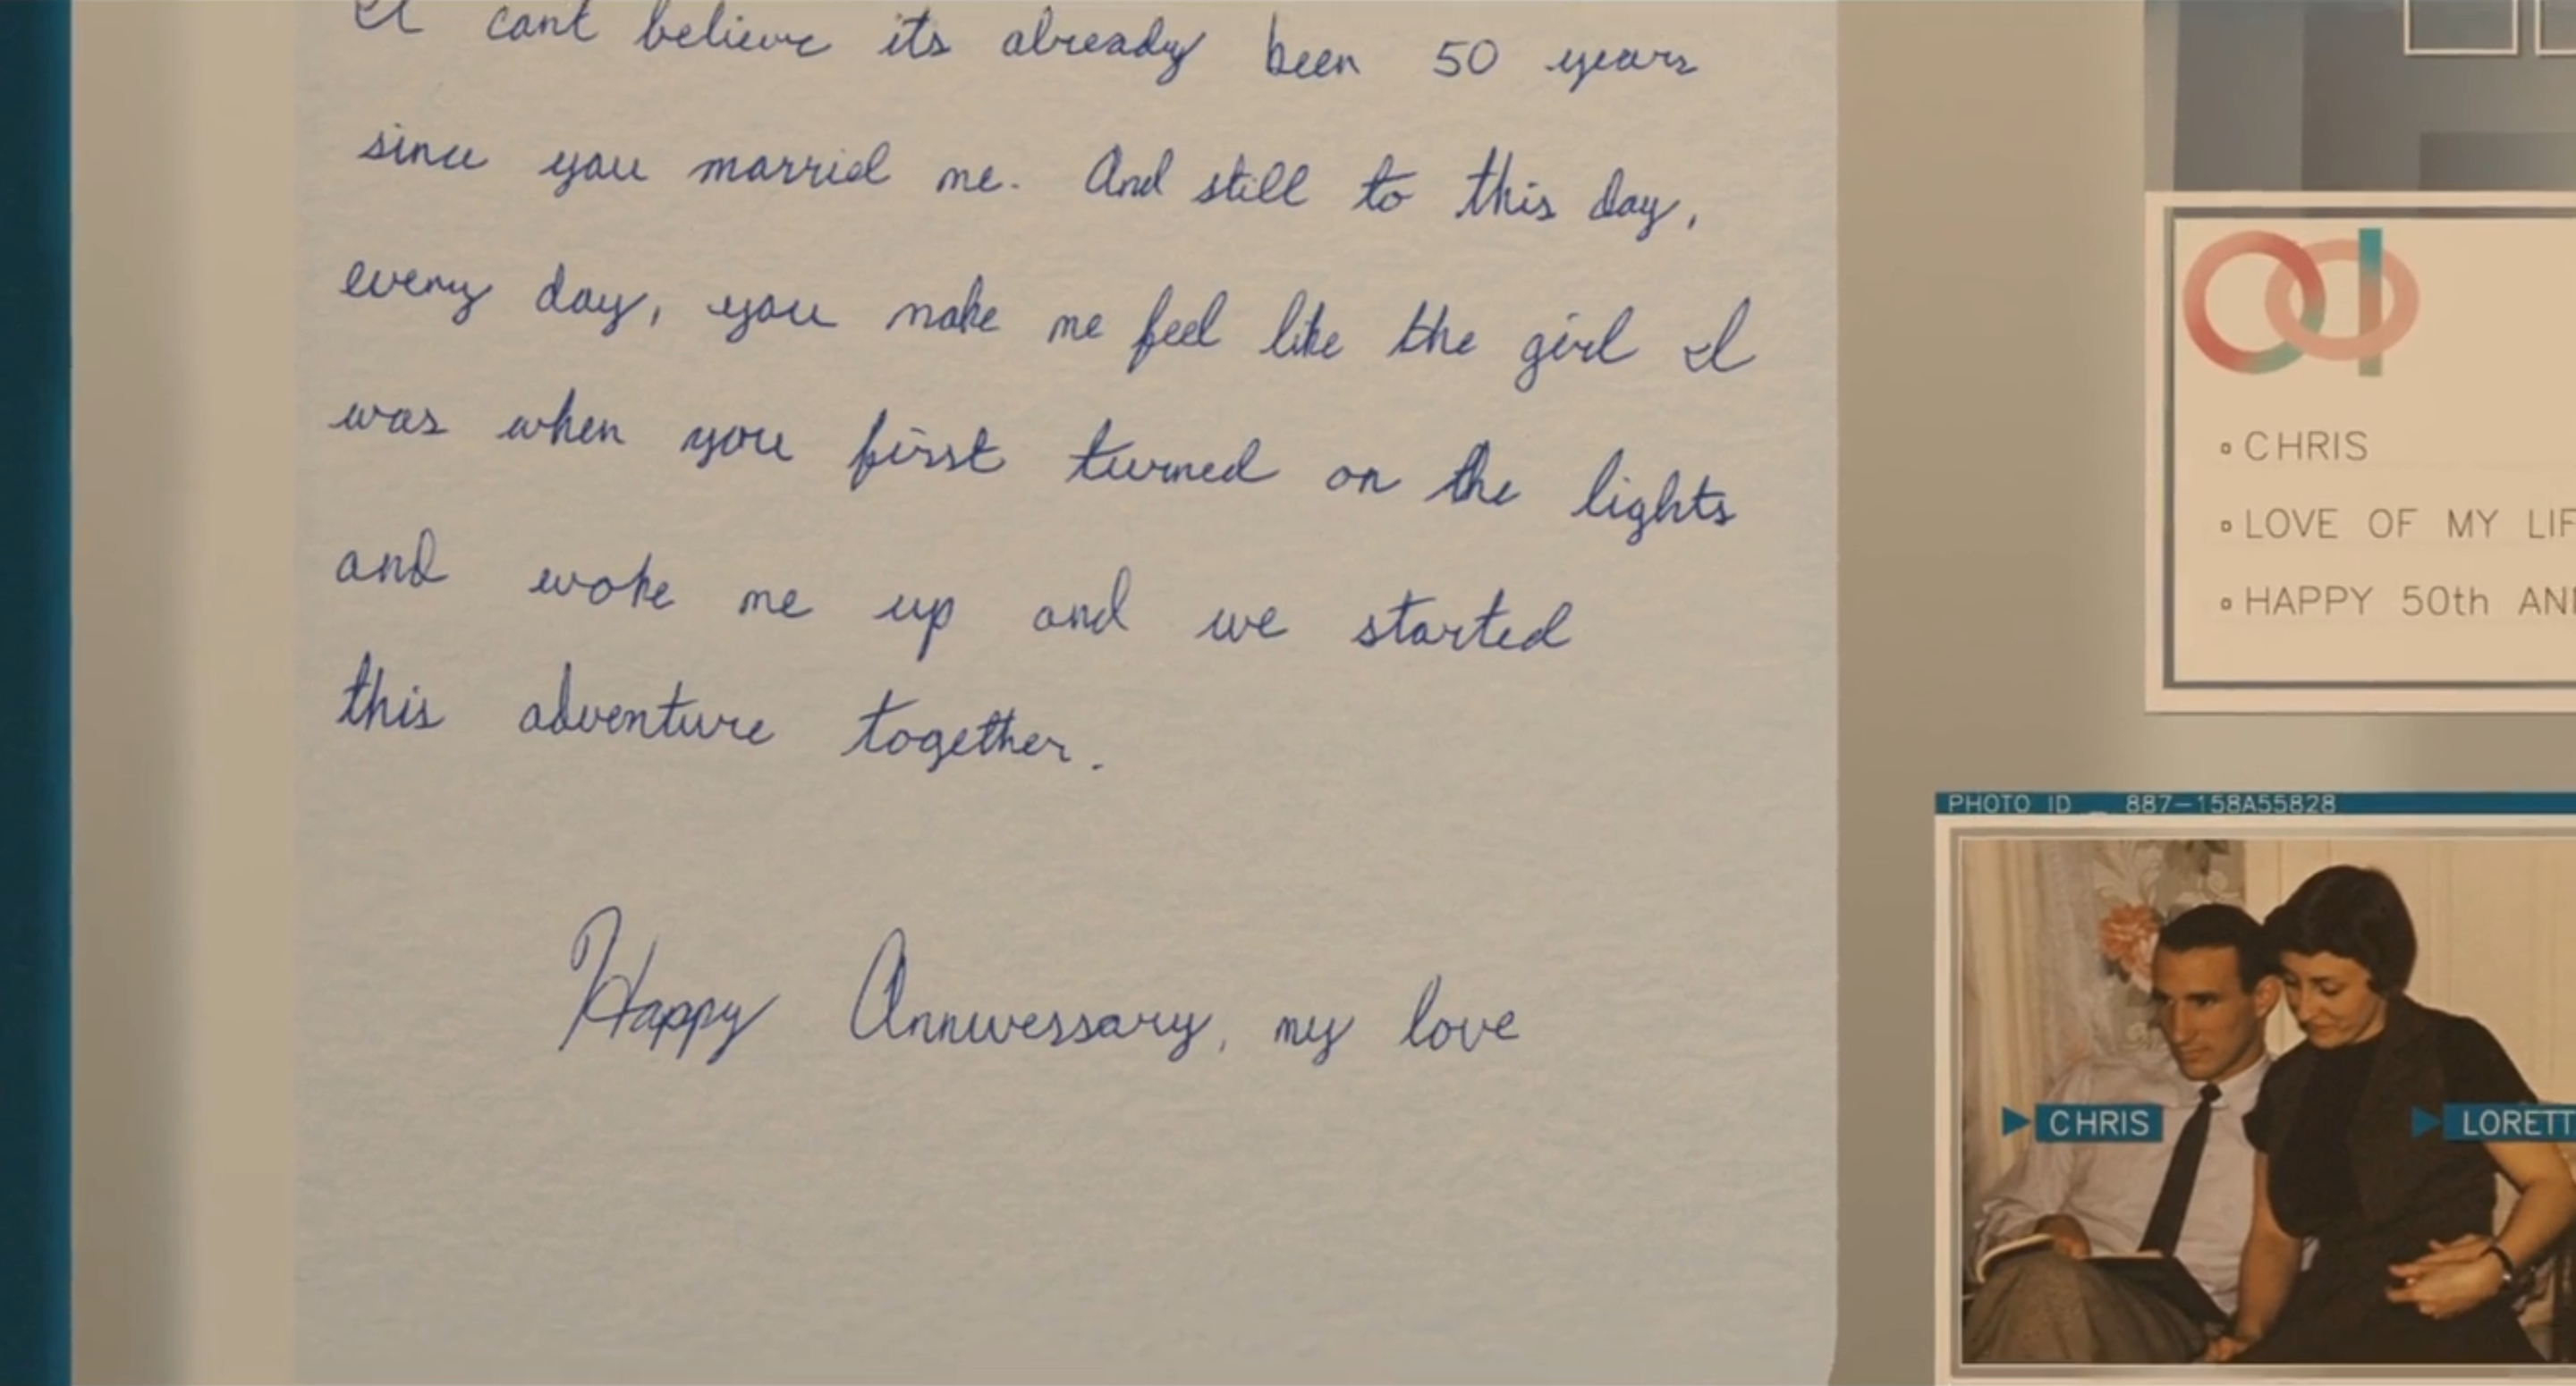 I cant believe its already been 50 years
since you married me. And still to this day,
every day, you make me feel like the girl I
was when you first turned on the lights
and woke me up and we started
this adventure together.
Happy Anniwessary, my love
CHRIS
LOVE OF MY LIF
HAPPY 50th ANN
PHOTO ID _ 887-158A55828
CHRIS
LORETT